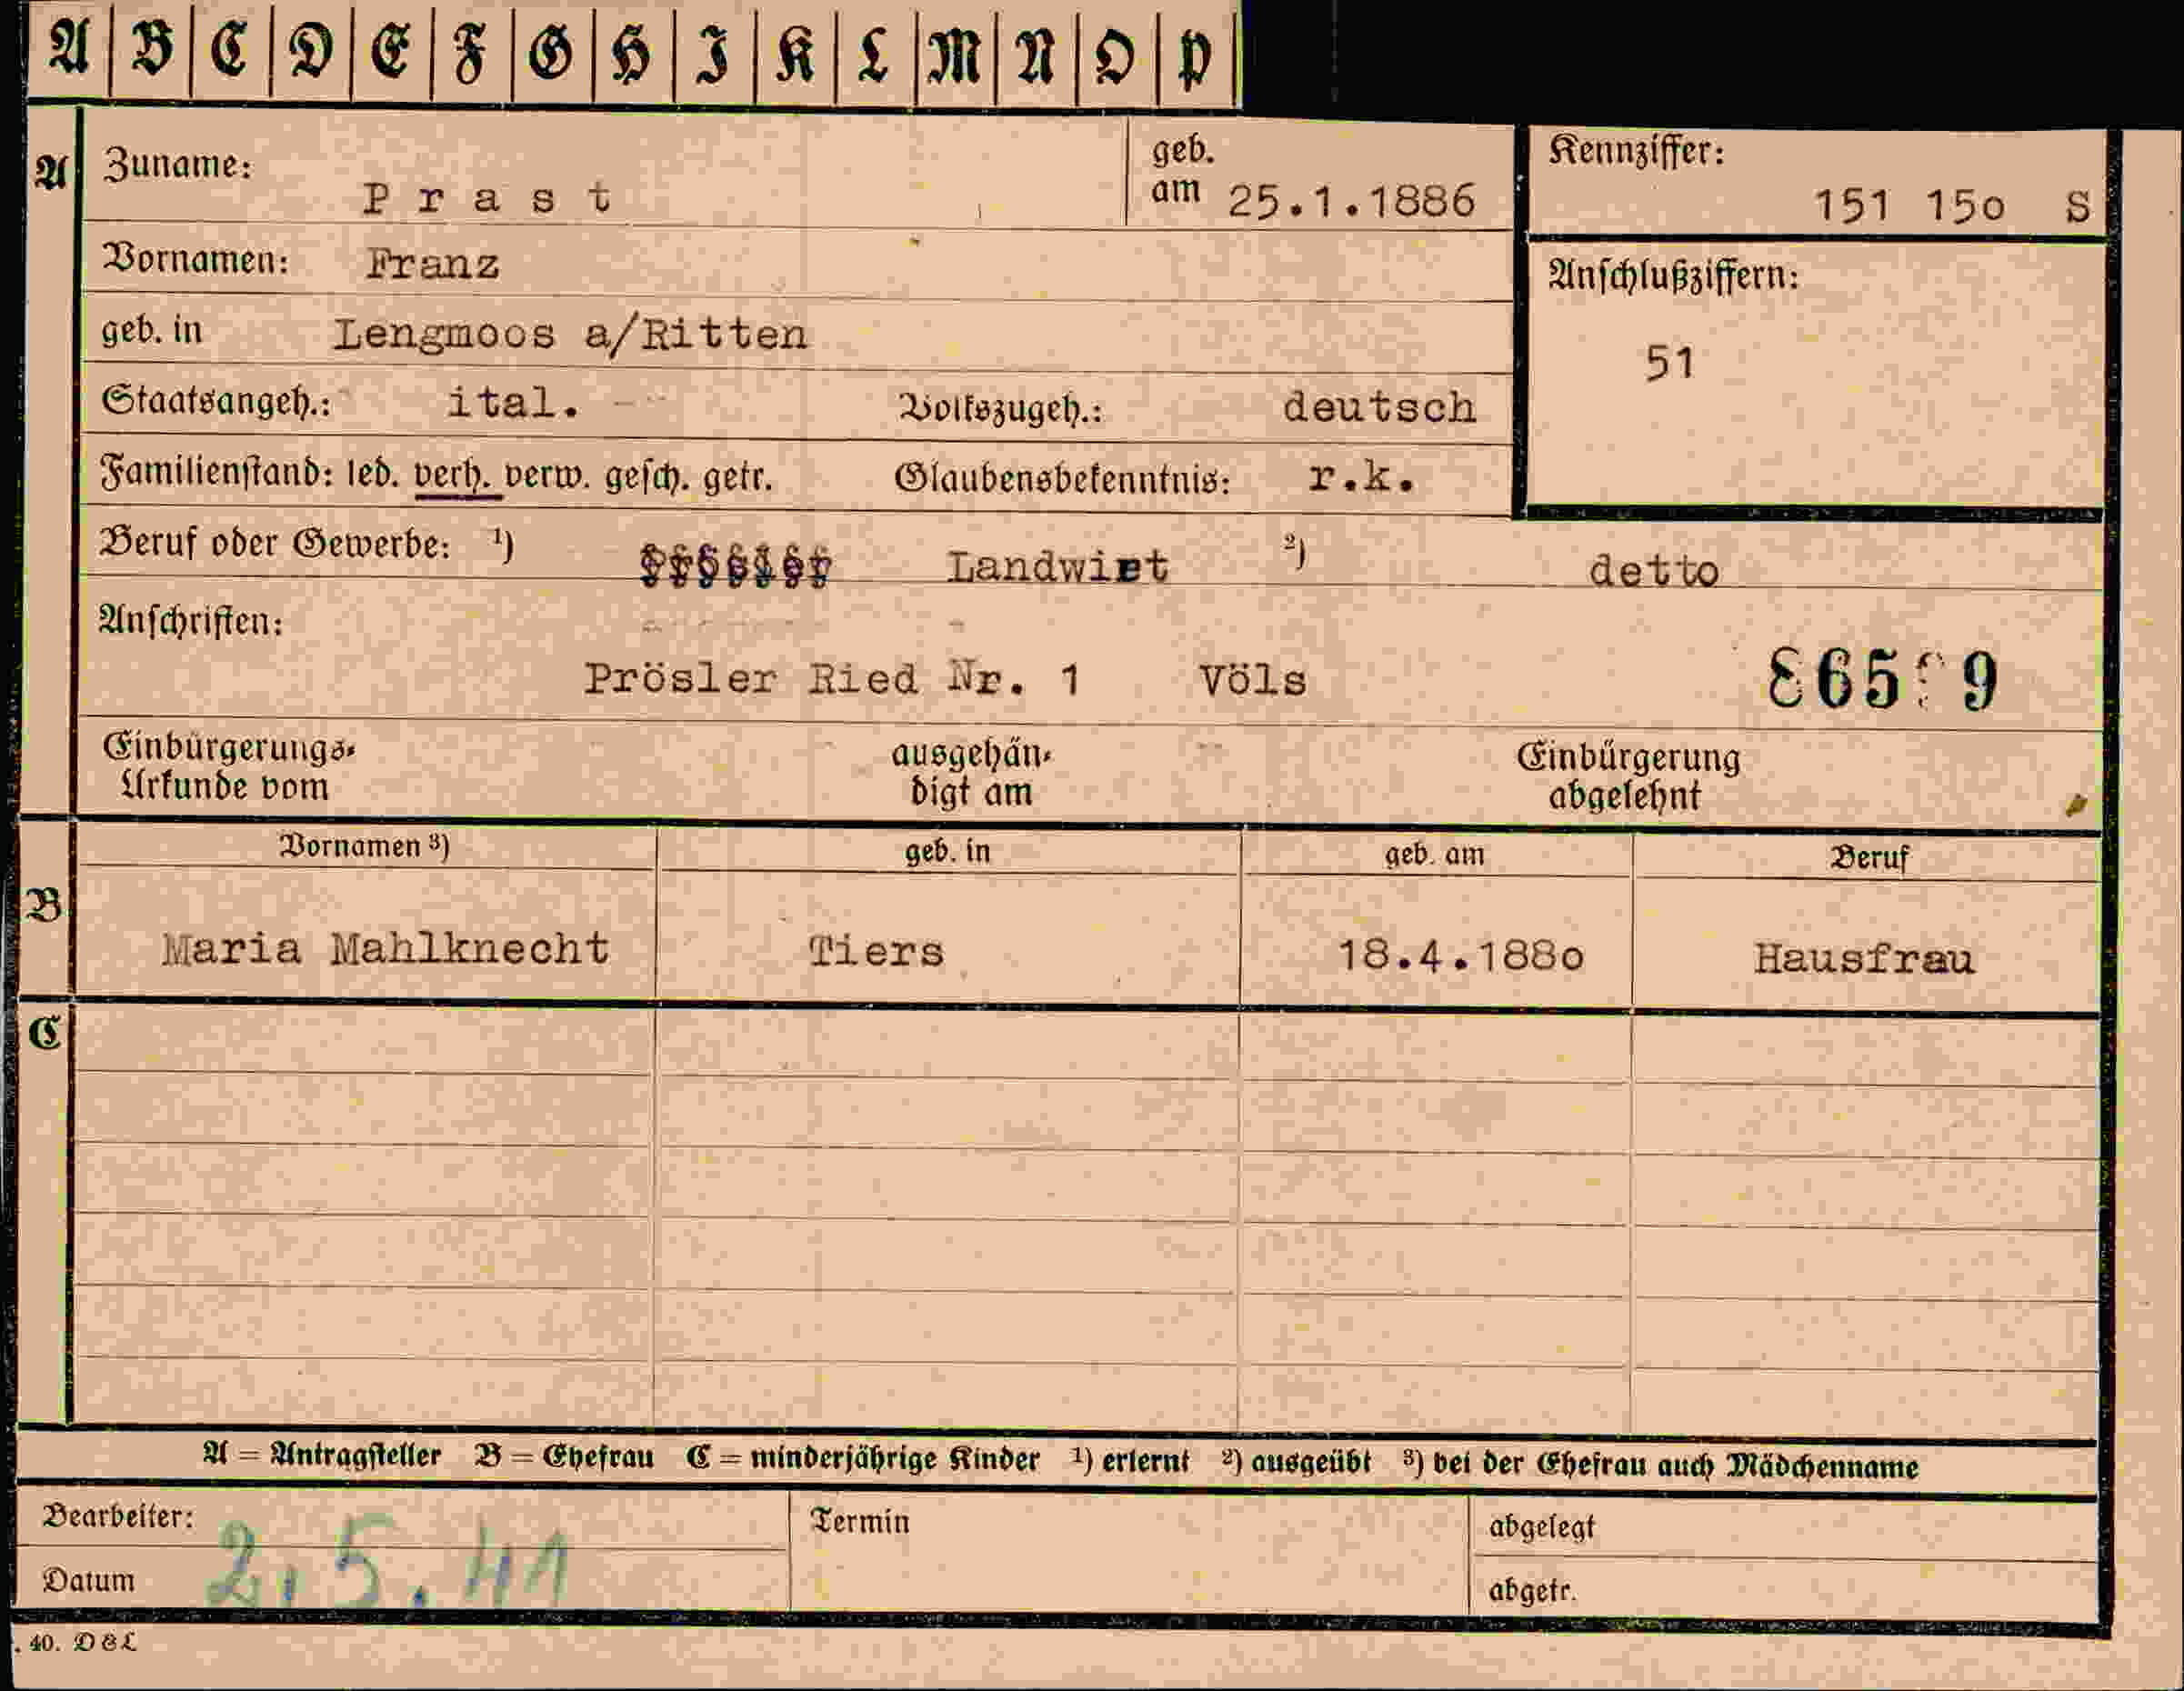 A B C D E F G H I K L M N O P
A Zuname: Prast geb. am 25.1.1886 Kennziffer: 151 15o S
Vornamen: Franz
Anschlußziffern: 51
geb. in Lengmoos a/Ritten
Staatsangeh.: ital. Volkszugeh.: deutsch
Familienstand: led. verh. verw. gesch. getr. Glaubensbekenntnis: r.k.
Beruf oder Gewerbe: ¹) Landwirt ²) detto
Anschriften:
Prösler Ried Nr. 1 Völs
Einbürgerungs-Urkunde vom ausgehändigt am Einbürgerung abgelehnt
Vornamen ³) geb. in geb. am Beruf
B Maria Mahlknecht Tiers 18.4.188o Hausfrau
C
A = Antragsteller B = Ehefrau C = minderjährige Kinder ¹) erlernt ²) ausgeübt ³) bei der Ehefrau auch Mädchenname
Bearbeiter: Termin abgelegt
Datum 2.5.41 abgetr.
. 40. D & L